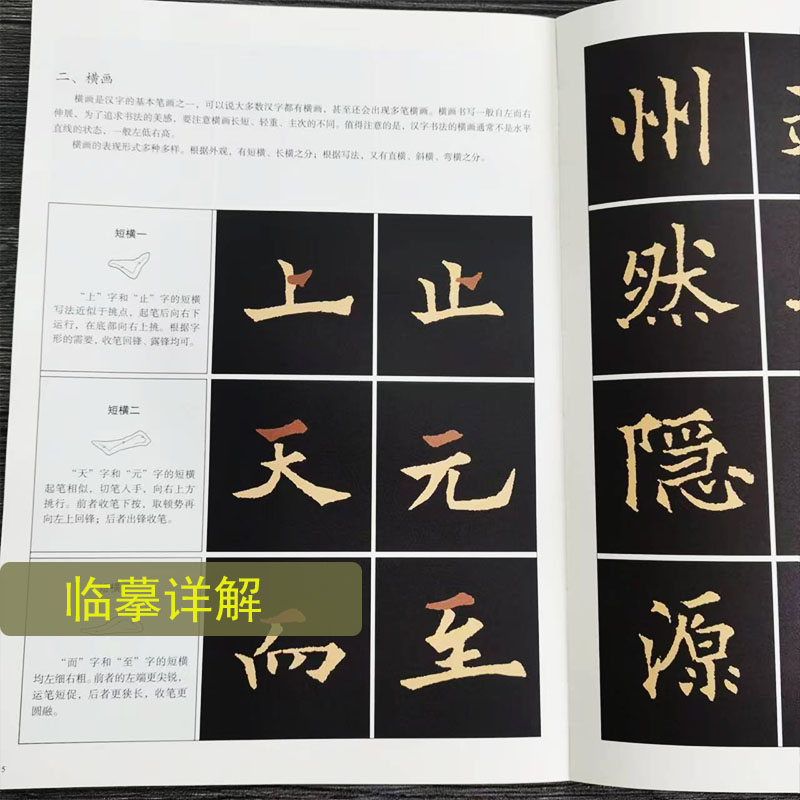 二、横画
横画是汉字的基本笔画之一，可以说大多数汉字都有横画，甚至还会出现多笔横画。横画书写一般自左而右
伸展，为了追求书法的美感，要注意横画长短、轻重、主次的不同。值得注意的是，汉字书法的横画通常不是水平
直线的状态，一般左低右高。
横画的表现形式多种多样。根据外观，有短横、长横之分；根据写法，又有直横、斜横、弯横之分。
短横一
“上”字和“止”字的短横
写法近似于挑点，起笔后向右下
运行，在底部向右上挑。根据字
形的需要，收笔回锋、露锋均可。
上
止
短横二
“天”字和“元”字的短横
起笔相似，切笔入手，向右上方
挑行。前者收笔下按，取顿势再
向左上回锋；后者出锋收笔。
天
元
临摹详解
“而”字和“至”字的短横
均左细右粗。前者的左端更尖锐，
运笔短促，后者更狭长，收笔更
圆融。
而
至
5
州
然
隐
源